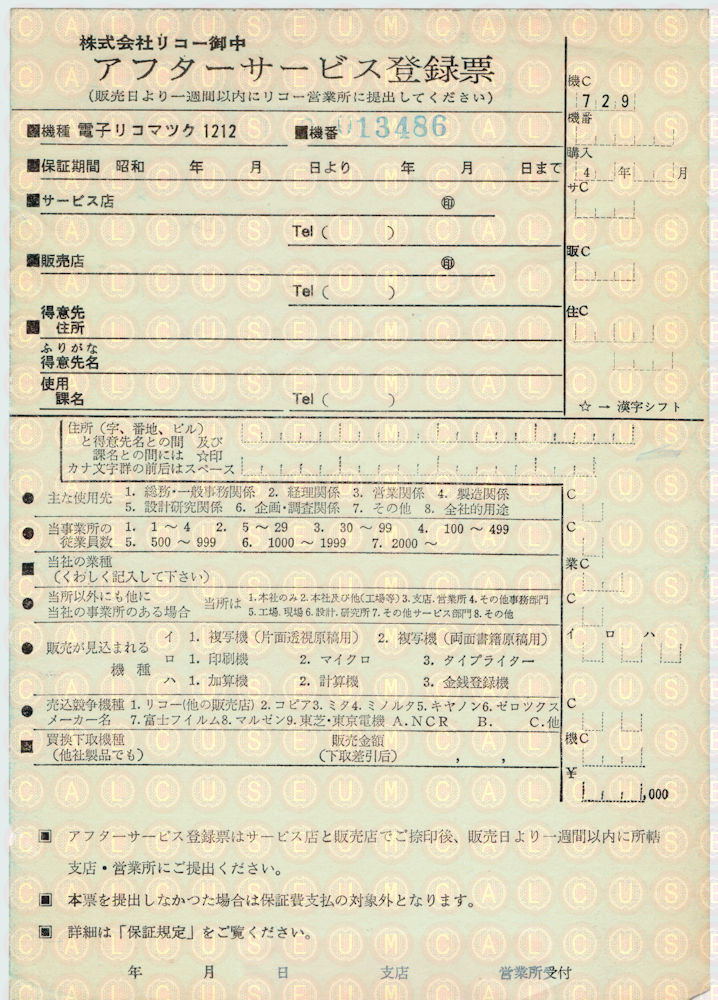 株式会社リコー御中
アフターサービス登録票
(販売日より一週間以内にリコー営業所に提出してください)
機C
729
機種 電子リコマック 1212 機番 013486
機番
保証期間 昭和 年 月 日より 年 月 日まで
購入
4 年 月
サービス店 ㊞
サC
Tel ( )
販売店 ㊞
販C
Tel ( )
得意先
住所
住C
ふりがな
得意先名
使用
課名 Tel ( )
☆ → 漢字シフト
住所(字、番地、ビル)
と得意先名との間 及び
課名との間には ☆印
カナ文字群の前后はスペース
主な使用先 1. 総務・一般事務関係 2. 経理関係 3. 営業関係 4. 製造関係
5. 設計研究関係 6. 企画・調査関係 7. その他 8. 全社的用途
C
当事業所の 1. 1 ～ 4 2. 5 ～ 29 3. 30 ～ 99 4. 100 ～ 499
従業員数 5. 500 ～ 999 6. 1000 ～ 1999 7. 2000 ～
C
当社の業種
(くわしく記入して下さい)
業C
当所以外にも他に
当社の事業所のある場合
当所は 1.本社のみ 2.本社及び他(工場等) 3.支店.営業所 4.その他事務部門
5.工場.現場 6.設計.研究所 7.その他サービス部門 8.その他
C
販売が見込まれる
機種
イ 1. 複写機(片面透視原稿用) 2. 複写機(両面書籍原稿用)
ロ 1. 印刷機 2. マイクロ 3. タイプライター
ハ 1. 加算機 2. 計算機 3. 金銭登録機
イ ロ ハ
売込競争機種 1. リコー(他の販売店) 2. コピア 3. ミタ 4. ミノルタ 5. キヤノン 6. ゼロツクス
メーカー名 7. 富士フイルム 8. マルゼン 9. 東芝・東京電機 A. NCR B. C. 他
C
買換下取機種 販売金額
(他社製品でも) (下取差引后) , ,
機C
￥
,000
アフターサービス登録票はサービス店と販売店でご捺印後、販売日より一週間以内に所轄
支店・営業所にご提出ください。
本票を提出しなかつた場合は保証費支払の対象外となります。
詳細は「保証規定」をご覧ください。
年 月 日 支店 営業所受付